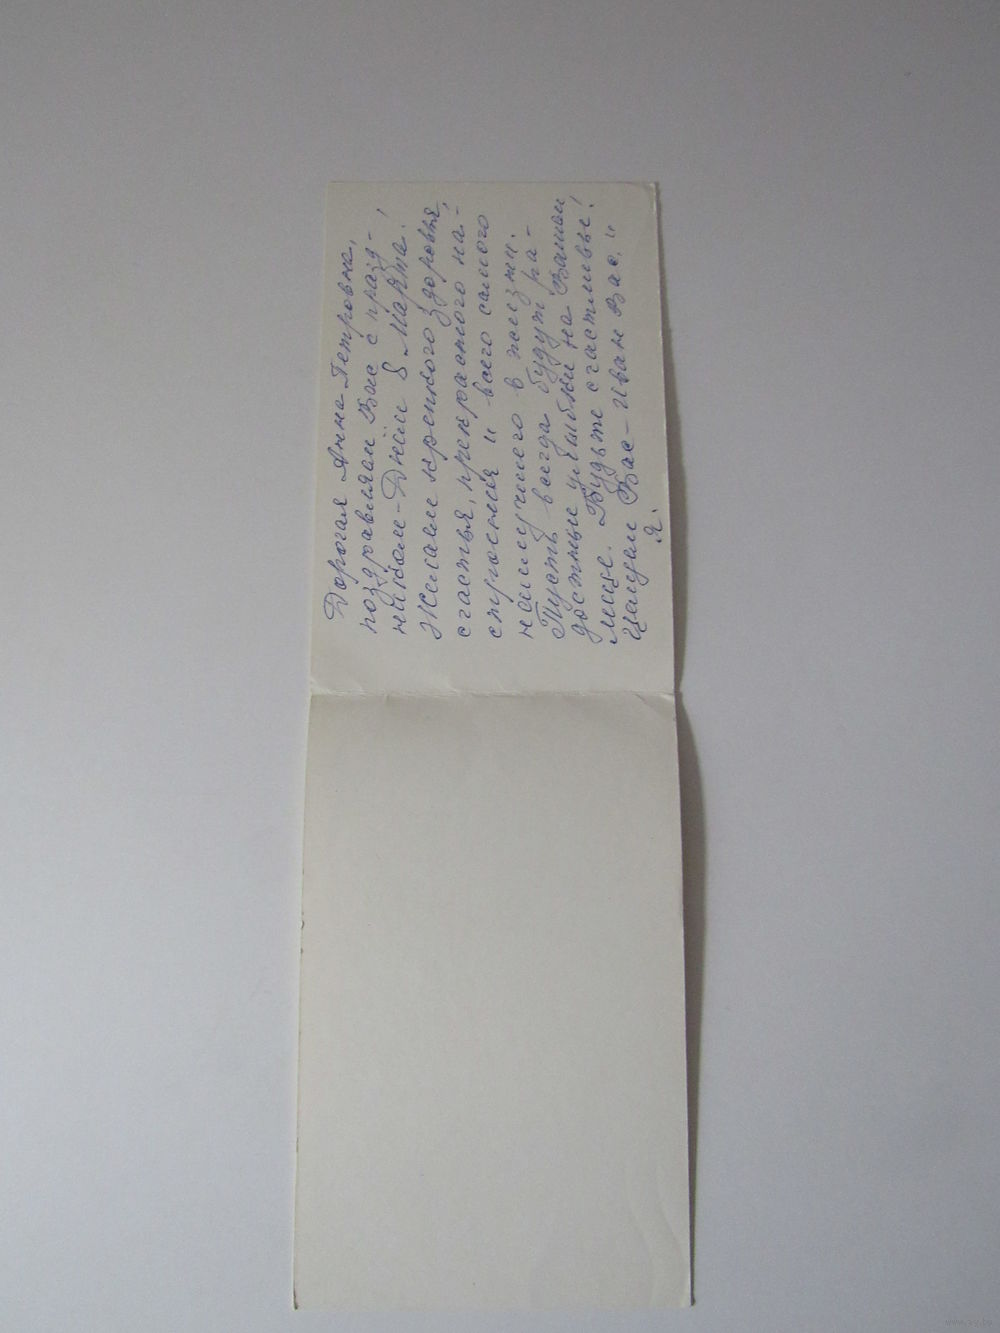 Дорогая Анна Петровна,
поздравляем Вас с празд-
ником - Днём 8 Марта!
Желаем крепкого здоровья,
счастья, прекрасного на-
строения и всего самого
наилучшего в жизни.
Пусть всегда будут ра-
достные улыбки на Вашем
лице. Будьте счастливы!
Целуем Вас - Иван Вас. и
я.